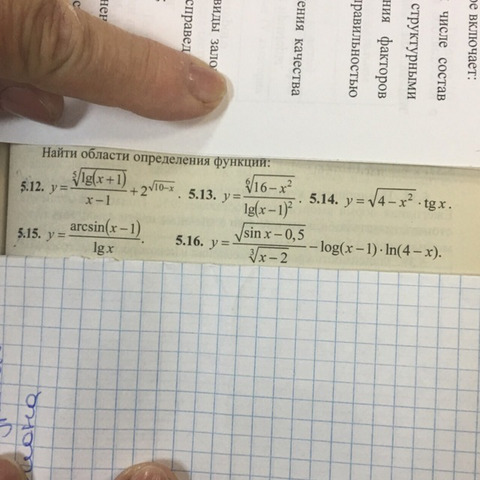 ое включает:
числе состав
структурными
ния факторов
равильностью
ения качества
виды зало
справед
Найти области определения функций:
5.12. y = \frac{\sqrt[5]{lg(x+1)}}{x-1} + 2^{\sqrt{10-x}}. 5.13. y = \frac{\sqrt[6]{16-x^2}}{lg(x-1)^2}. 5.14. y = \sqrt{4-x^2} \cdot tg x.
5.15. y = \frac{arcsin(x-1)}{lg x}. 5.16. y = \frac{\sqrt{sin x-0,5}}{\sqrt[3]{x-2}} - log(x-1) \cdot ln(4-x).